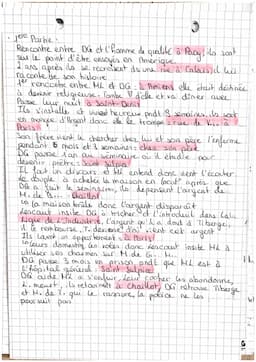 1ère Partie :
Rencontre entre DG et l'homme de qualité à Pacy, ils sont
sur le point d'être envoyés en Amérique.
2 ans après ils se recroisent ds une rue à Calais, il lui
raconte son histoire
1ère rencontre entre ML et DG : à Amiens elle était destinée
à devenir religieuse, tombe d'elle et va dîner avec
Passe leur nuit à Saint-Denis
Ils s'installe et vivent heureux pndt 3 semaines, ils sont
en manque d'argent donc elle le trompe : rue de
Paris
Son frère vient le chercher chez lui et son père l'enferme
pendant 6 mois et 3 semaines : chez son père
DG passe 1 an au séminaire où il étudie pour
devenir prêtre : Saint Sulpice
Il fait un discours et ML entend donc vient l'écouter.
le couple à acheter la maison en après que
DG a fuit le séminaire, ils dépendent l'argent de
M. de B : Chaillot
la maison brule donc l'argent disparaît
Lescaut insite DG à tricher et l'introduit dans la
ligue de l'Industrie, l'argent à Tiberge,
il le rembourse, T. devient
Ils louent un appartement : à Paris
domestiques les volés donc Lescaut insite ML à
utiliser ses charmes sur M. de G. M.
DG passe 3 mois en prison pndt que ML est à
l'Hôpital général : Saint Sulpice
DG aide ML a s'enfuir, leur cocher les abandonne,
L. meurt, ils retournent à Chaillot, DG retrouve Tiberge
et M. de T. qui le rassure, la police ne les
poursuit pas